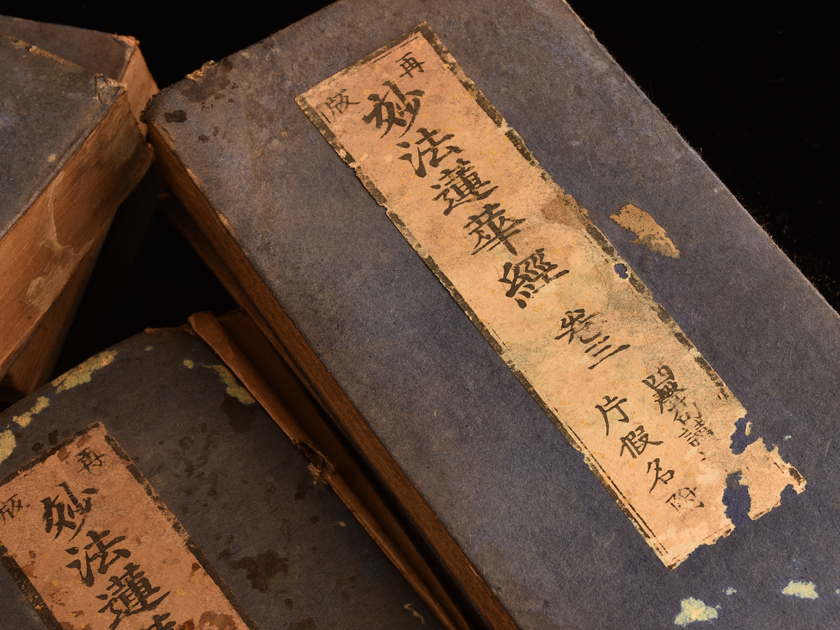 再版
妙法蓮華經 卷三
片假名附
再版
妙法蓮華